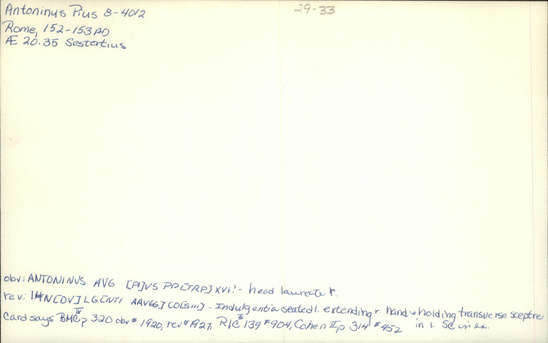 Antoninus Pius B-4012
29-33
Rome, 152-153 AD
Æ 20.35 Sestertius
obv: ANTONINUS AVG [P]IVS PP [TRP] XVI: - head laureate r.
rev: IN[DV]LGE[NTI AAVGG] [CO[SIII] - Indulgentia seated l. extending r. hand & holding transverse sceptre
in l. SC in ex.
Card says BMC IV p 320 obv # 1920, rev # 1927. RIC III 139 # 904, Cohen II p 314 # 452